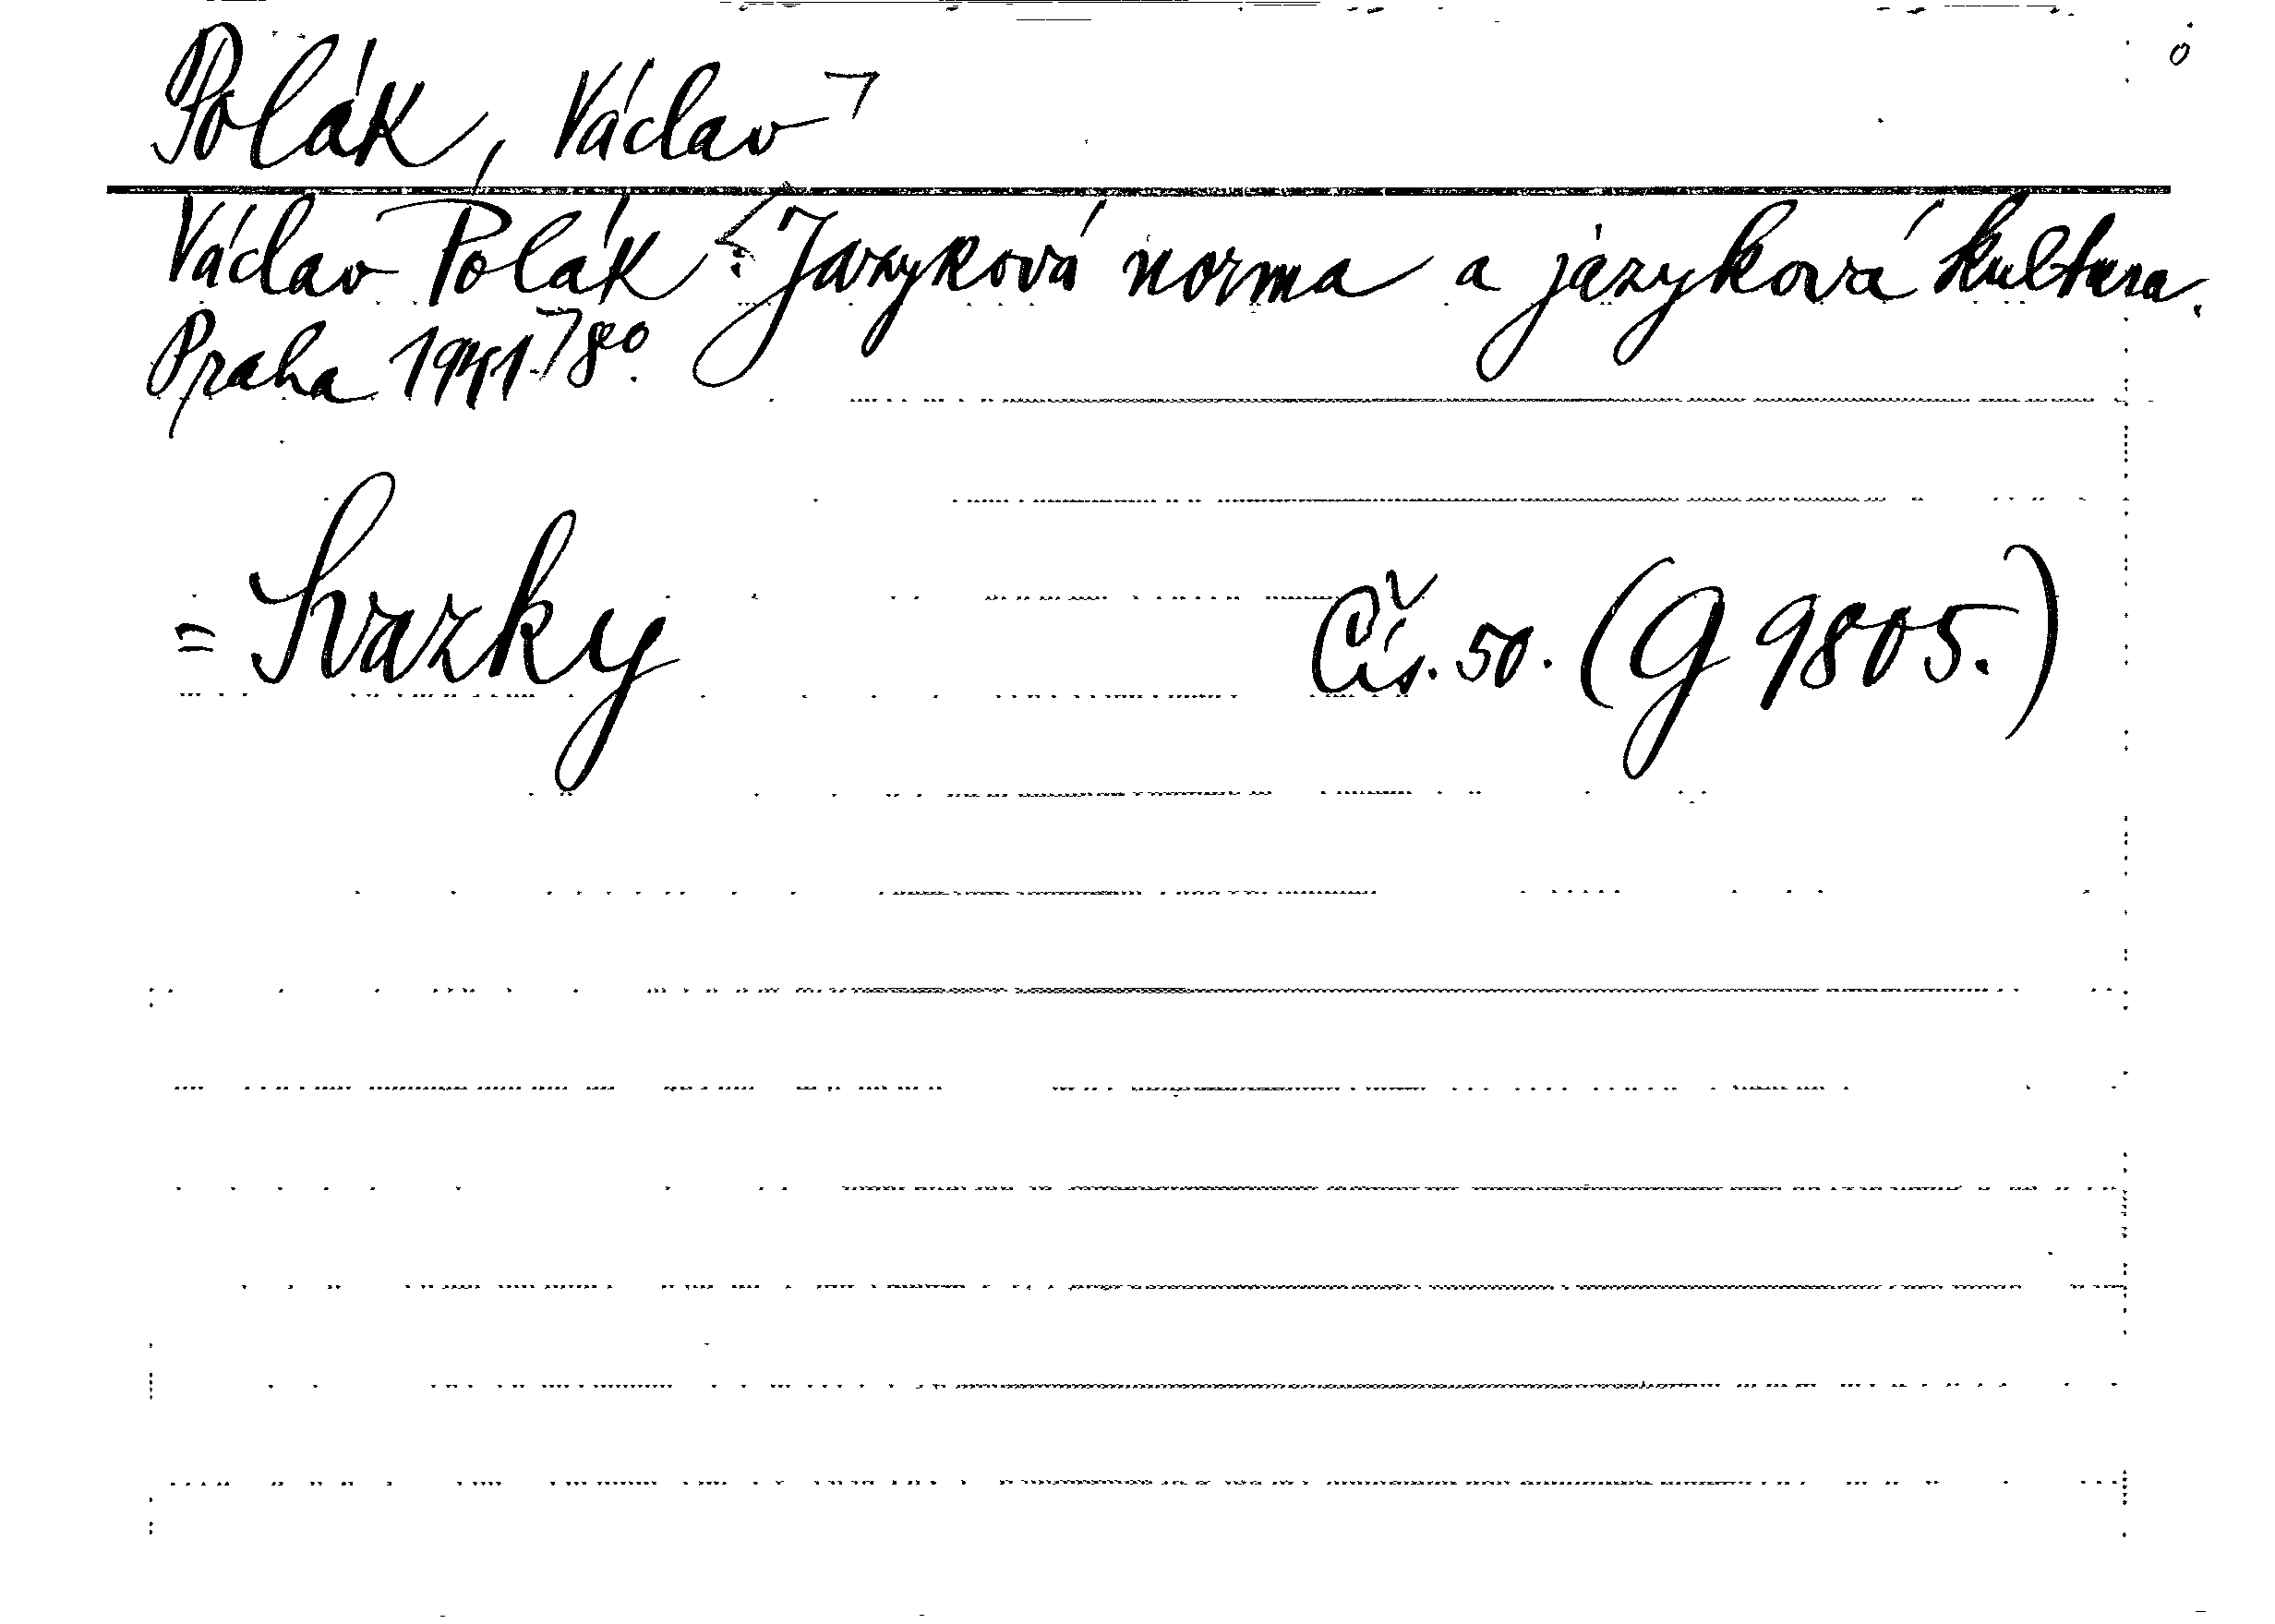 Polák, Václav
Václav Polák: Jazyková norma a jazyková kultura.
Praha 1941. 8o.
= Svazky Čís. 50. (G 9805.)